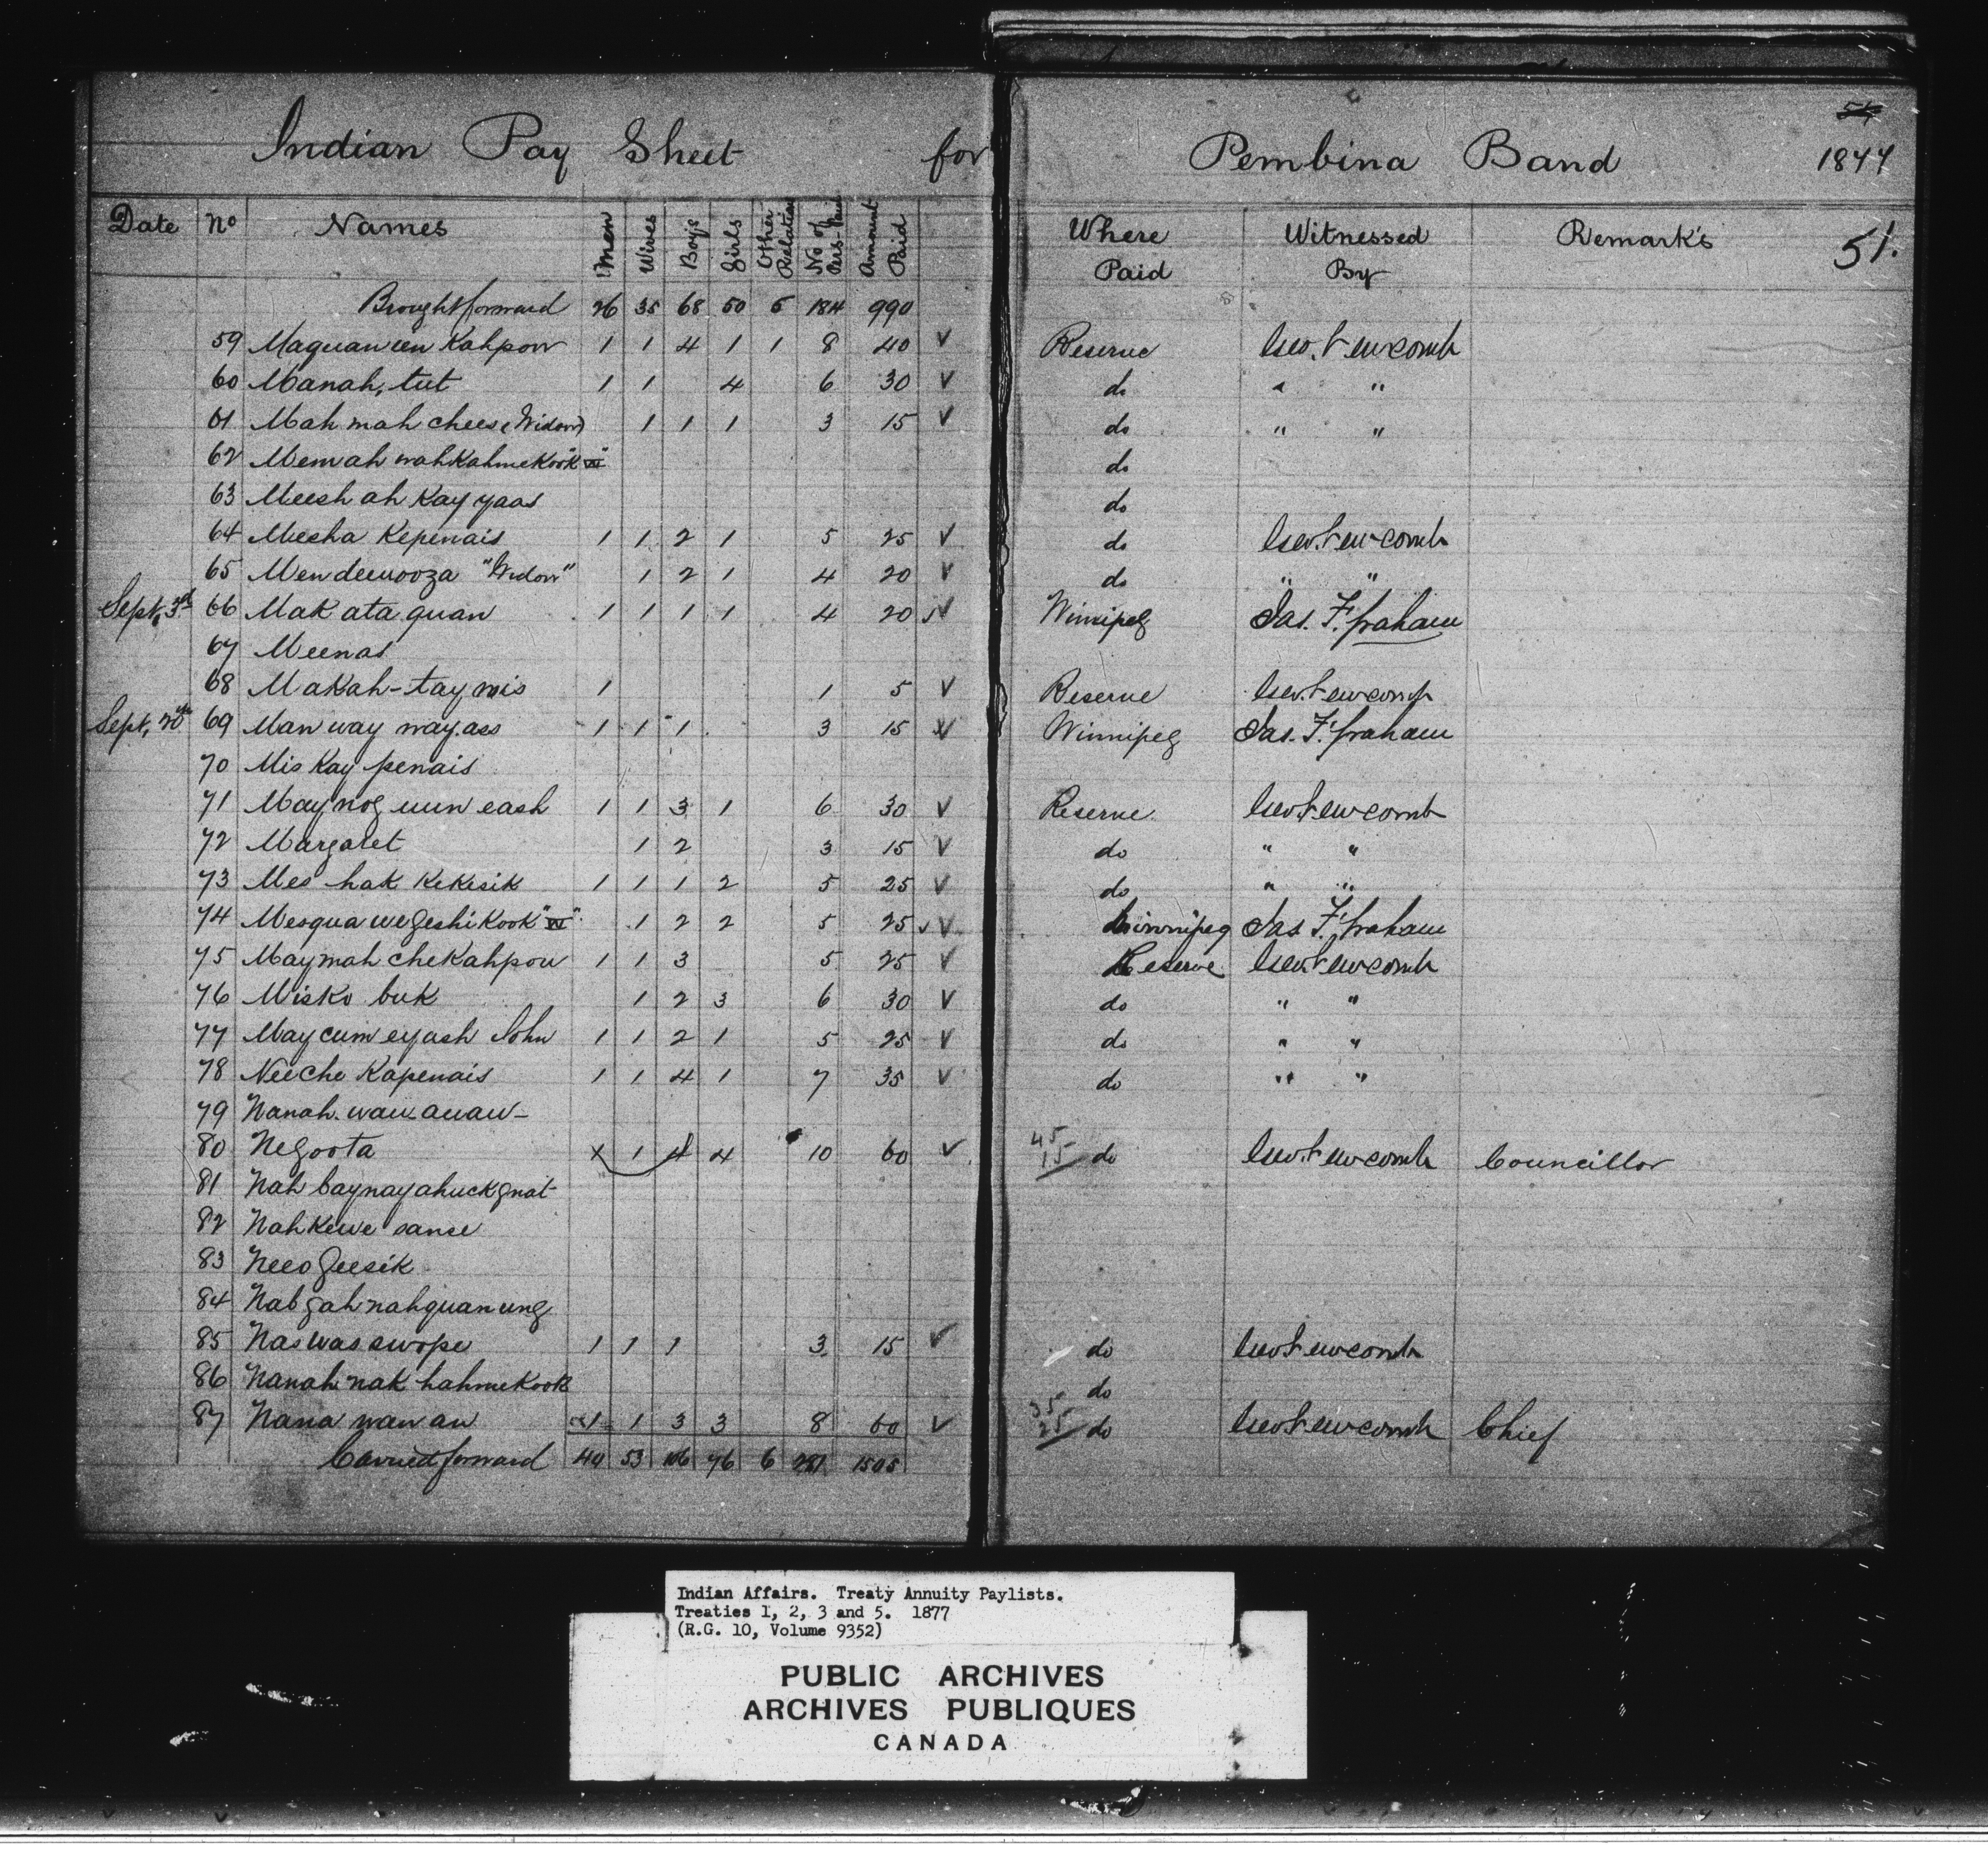 54
Indian Pay Sheet for Pembina Band 1877
Date No Names Men Wives Boys Girls Other Relation No of Amount Paid Where Paid Witnessed By Remark's 51.
Brought forward 26 35 68 50 5 184 990
59 Maquan un Kahpow 1 1 4 1 1 8 40 V Reserve Geo. Newcomb
60 Manah, tut 1 1 4 6 30 V do " "
61 Mah mah chees (Widow) 1 1 1 3 15 V do " "
62 Memah wahKahmeKook "W" do
63 Meesh ah Kay yaas do
64 Meesha Kepenais 1 1 2 1 5 25 V do Geo. Newcomb
65 Men demooza "Widow" 1 2 1 4 20 V do " "
Sept, 3rd 66 Mak ata quan 1 1 1 1 4 20 V Winnipeg Jas. F. Graham
67 Meenas
68 Makah-tay wis 1 1 5 V Reserve Geo. Newcomb
Sept, 20th 69 Man way way.ass 1 1 1 3 15 V Winnipeg Jas. F. Graham
70 Mis Kay penais
71 May nog eun eash 1 1 3 1 6 30 V Reserve Geo Newcomb
72 Margaret 1 2 3 15 V do " "
73 Mes hak KeKesik 1 1 1 2 5 25 V do " "
74 Mesqua we geshi Kook "W" 1 2 2 5 25 V Winnipeg Jas F. Graham
75 Maymah cheKahpow 1 1 3 5 25 V Reserve Geo. Newcomb
76 Misko buk 1 2 3 6 30 V do " "
77 Maycum eyash John 1 1 2 1 5 25 V do " "
78 Neeche Kapenais 1 1 4 1 7 35 V do " "
79 Nanah. wau auaw-
80 Negoota 1 1 4 4 10 60 V 45 15 do Geo. Newcomb Councillor
81 Nah baynayahuckgnat
82 Nahkewe sanse
83 Neeo geesik
84 Nabgahnahquanung
85 Naswas swope 1 1 1 3 15 V do Geo Newcomb
86 Nanah nak hahmekook do
87 Nana wawan 1 1 3 3 8 60 V 35 25 do Geo Newcomb Chief
Carried forward 40 53 106 76 6 281 1505
Indian Affairs. Treaty Annuity Paylists.
Treaties 1, 2, 3 and 5. 1877
(R.G. 10, Volume 9352)
PUBLIC ARCHIVES
ARCHIVES PUBLIQUES
CANADA